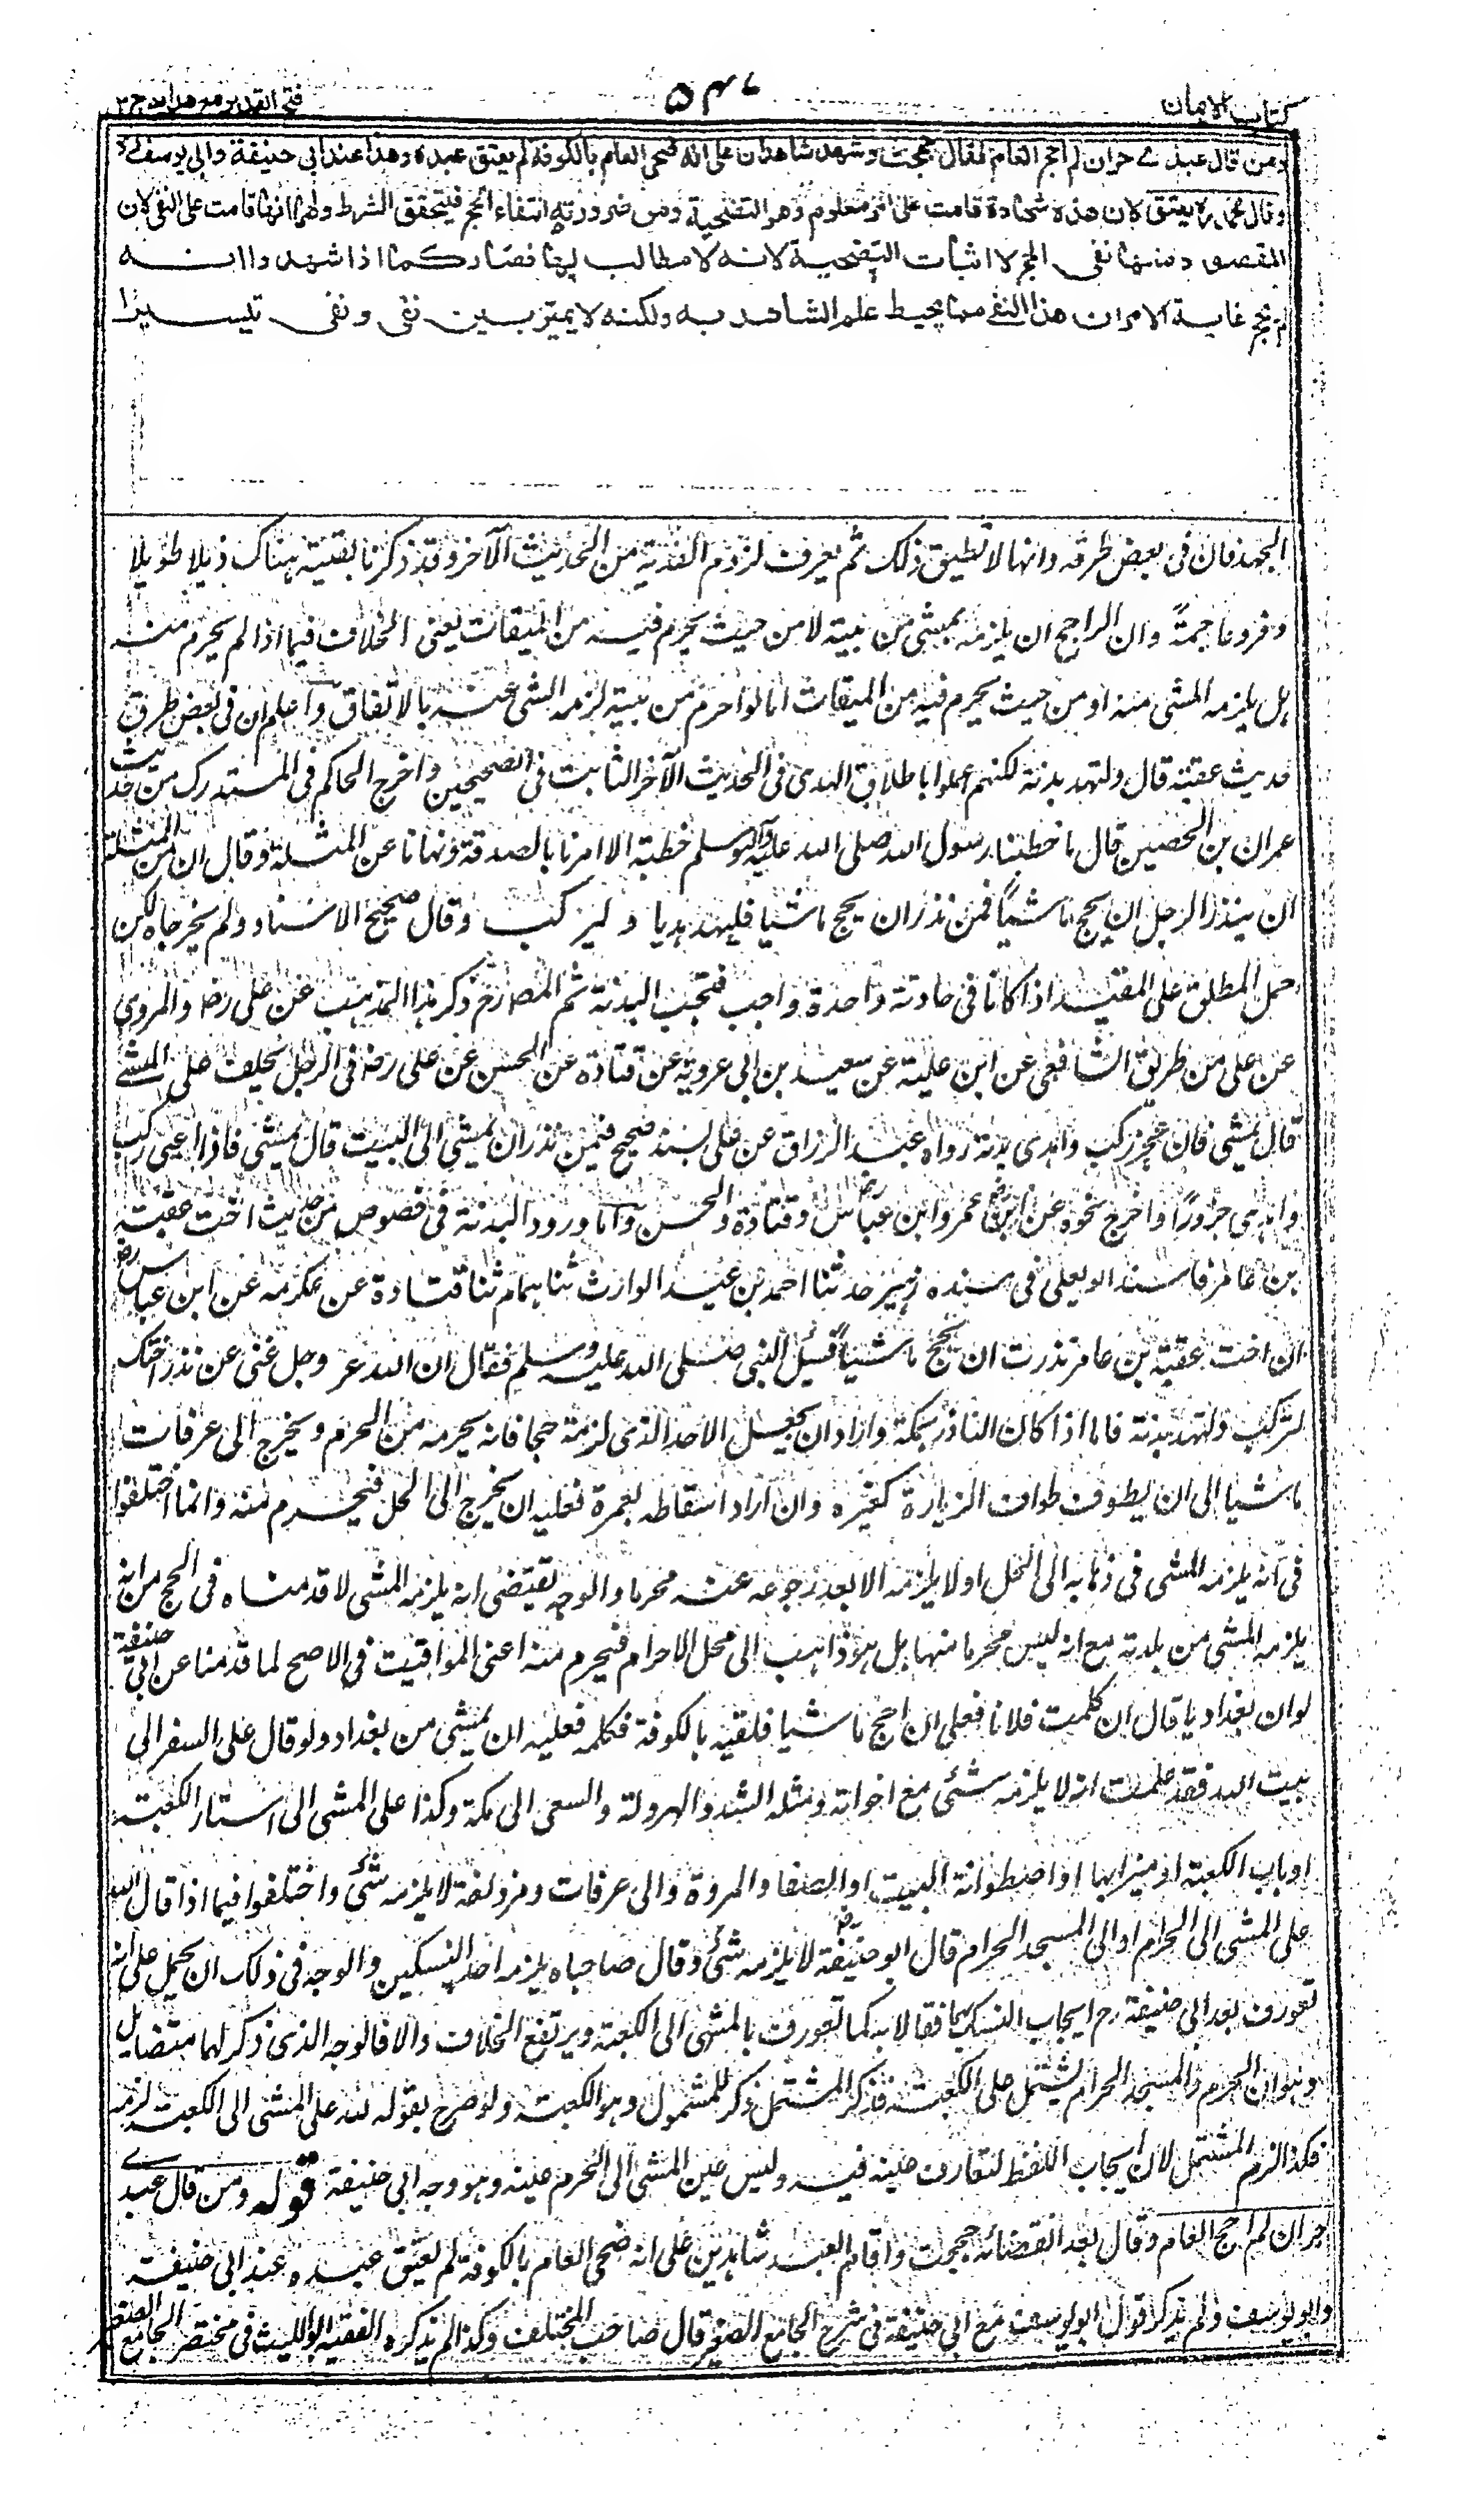 كتاب الايمان
۵۴۷
فتح القدير مع هدايه ج ۲
ومن قال عبدى حران لم احج العام فقال حججت وشهد شاهدان على انه ضحى العام بالكوفة لم يعتق عبده وهذا عند ابى حنيفة وابى يوسف
وقال محمد يعتق لان هذه شهادة قامت على امر معلوم وهو التضحية ومن ضرورته انتفاء الحج فيتحقق الشرط ولهما انها قامت على النفى لان
المقصود منها نفى الحج لا اثبات التضحية لانه لا مطالب لها فصار كما اذا شهدوا انه
لم يحج غاية الامر ان هذا النفى مما يحيط علم الشاهد به ولكنه لا يميز بين نفى ونفى تيسيرا
الجهد فان فى بعض طرقه وانها لا تطيق ذلك ثم يعرف لزوم الفدية من الحديث الآخر وقد ذكرنا بقيته هناك ذيلا طويلا
وفروعا جمة وان الراجح ان يلزمه يمشى من بيته لا من حيث يحرم فيه من الميقات يعنى الخلاف فيما اذا لم يحرم منه
بل يلزمه المشى منه او من حيث يحرم فيه من الميقات اما لو احرم من بيته لزمه المشى عنه بالاتفاق واعلم ان فى بعض طرق
حديث عقبة قال ولتهد بدنة لكنهم عملوا باطلاق الهدى فى الحديث الآخر الثابت فى الصحيحين واخرج الحاكم فى المستدرك من حديث
عمران بن الحصين قال ما خطبنا رسول الله صلى الله عليه وآله وسلم خطبة الا امرنا بالصدقة ونهانا عن المثلة وقال ان من المثلة
ان ينذر الرجل ان يحج ماشيًا فمن نذر ان يحج ماشيا فليهد هديا وليركب وقال صحيح الاسناد ولم يخرجاه لكن
حمل المطلق على المقيد اذا كانا فى حادثة واحدة واجب فتجب البدنة ثم المصنف رح ذكر هذا المذهب عن على رض والمروى
عن على من طريق الشافعى عن ابن علية عن سعيد بن ابى عروبة عن قتادة عن الحسن عن على رض فى الرجل يحلف على المشى
قال يمشى فان عجز ركب واهدى بدنة رواه عبد الرزاق عن على بسند صحيح فيمن نذر ان يمشى الى البيت قال يمشى فاذا اعيى ركب
واهدى جزورًا واخرج نحوه عن ابن عمر وابن عباس رض وقتادة والحسن واما ورود البدنة فى خصوص من حديث اخت عقبة
بن عامر فاسند ابو يعلى فى مسنده زهير حدثنا احمد بن عبد الوارث ثنا همام ثنا قتادة عن عكرمة عن ابن عباس رض
ان اخت عقبة بن عامر نذرت ان تحج ماشيًا فسئل النبى صلى الله عليه وسلم فقال ان الله عز وجل غنى عن نذر اختك
لتركب ولتهد بدنة فاما اذا كان الناذر بمكة واراد ان يجعل الاحد الذى لزمه حجا فانه يحرم من الحرم ويخرج الى عرفات
ماشيا الى ان يطوف طواف الزيارة كغيره وان اراد اسقاطه بعمرة فعليه ان يخرج الى الحل فيحرم منه وانما اختلفوا
فى انه يلزمه المشى فى ذهابه الى الحل اولا يلزمه الا بعد رجوعه عنه محرما والوجه يقتضى انه يلزمه المشى لا قدمناه فى الحج من انه
يلزمه المشى من بلدته مع انه ليس محرما منها بل هو ذاهب الى محل الاحرام فيحرم منه اعنى المواقيت فى الاصح لما قدمنا عن ابى حنيفة
لو ان بغداديا قال ان كلمت فلانا فعلى ان احج ماشيا فلقيه بالكوفة فكلمه فعليه ان يمشى من بغداد ولو قال على السفر الى
بيت الله فقد علمت انه لا يلزمه شئ مع اخواته ومثله الشد والهرولة والسعى الى مكة وكذا على المشى الى استار الكعبة
او باب الكعبة او ميزابها او اصطوانة البيت او الصفا والمروة والى عرفات ومزدلفة لا يلزمه شئ واختلفوا فيما اذا قال لله
على المشى الى الحرام او الى المسجد الحرام قال ابو حنيفة رض لا يلزمه شئ وقال صاحباه يلزمه احد النسكين والوجه فى ذلك ان يحمل على انه
تعورف بعد ابى حنيفة رح ايجاب النسك بهما فقالا به كما تعورف بالمشى الى الكعبة ويرتفع الخلاف والا فالوجه الذى ذكر لهما متضايل
وهو ان الحرم والمسجد الحرام يشتمل على الكعبة فذكر المشتمل ذكر للمشمول وهو الكعبة ولو صرح بقوله لله على المشى الى الكعبة لزمه
فكذا الزم المشتمل لان ايجاب اللفظ لتعارف عينه فيه وليس عين المشى الى الحرم عينه وهو وجه ابى حنيفة قوله ومن قال عبدى
حر ان لم احج العام وقال بعد انقضائه حججت واقام العبد شاهدين على انه ضحى العام بالكوفة لم يعتق عبده عند ابى حنيفة
وابو يوسف ولم يذكر قول ابو يوسف مع ابى حنيفة فى شرح الجامع الصغير قال صاحب المختلف وكذا لم يذكره الفقيه ابو الليث فى مختصر الجامع الصغير